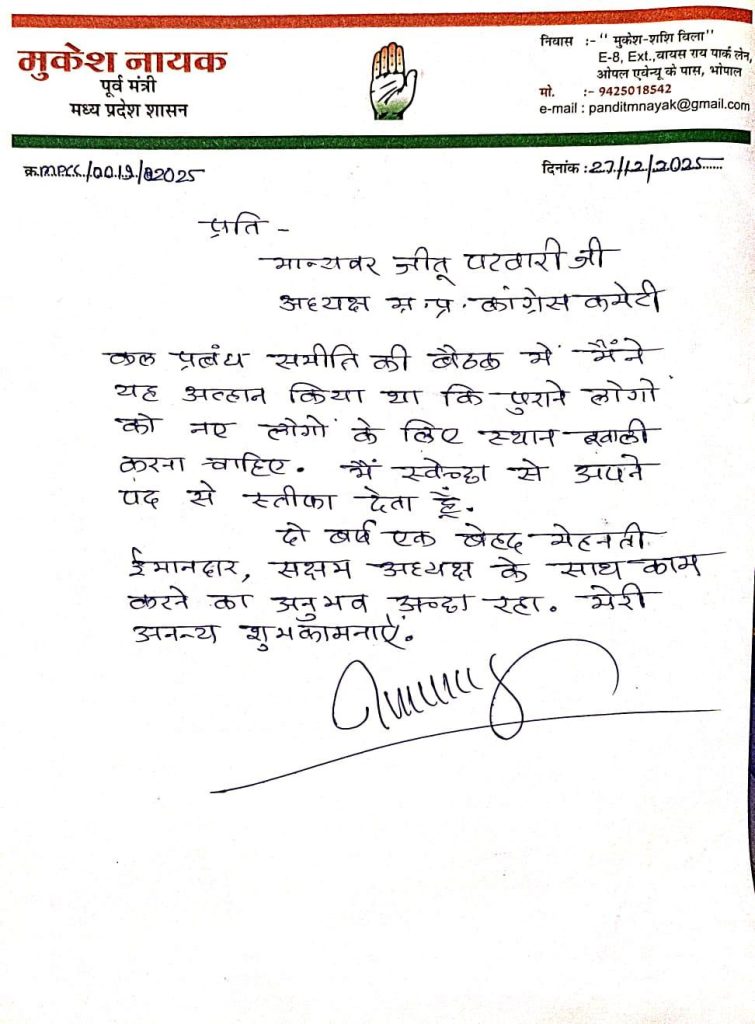 मुकेश नायक
पूर्व मंत्री
मध्य प्रदेश शासन
निवास :- " मुकेश-शशि विला"
E-8, Ext.,वायस राय पार्क लेन,
ओपल एवेन्यू के पास, भोपाल
मो. :- 9425018542
e-mail : panditmnayak@gmail.com
क्र.M.P.C.C./0019/2025
दिनांक : 27/12/2025
प्रति -
मान्यवर जीतू पटवारी जी
अध्यक्ष म.प्र. कांग्रेस कमेटी
कल प्रबंध समीति की बैठक में मैंने
यह किया था कि पुराने लोगों
को नए लोगों के लिए स्थान खाली
करना चाहिए. मैं स्वेच्छा से अपने
पद से स्तीफा देता हूँ.
दो वर्ष एक बेहद मेहनती
ईमानदार, सक्षम अध्यक्ष के साथ काम
करने का अनुभव अच्छा रहा. मेरी
अनन्य शुभकामनाऐं.